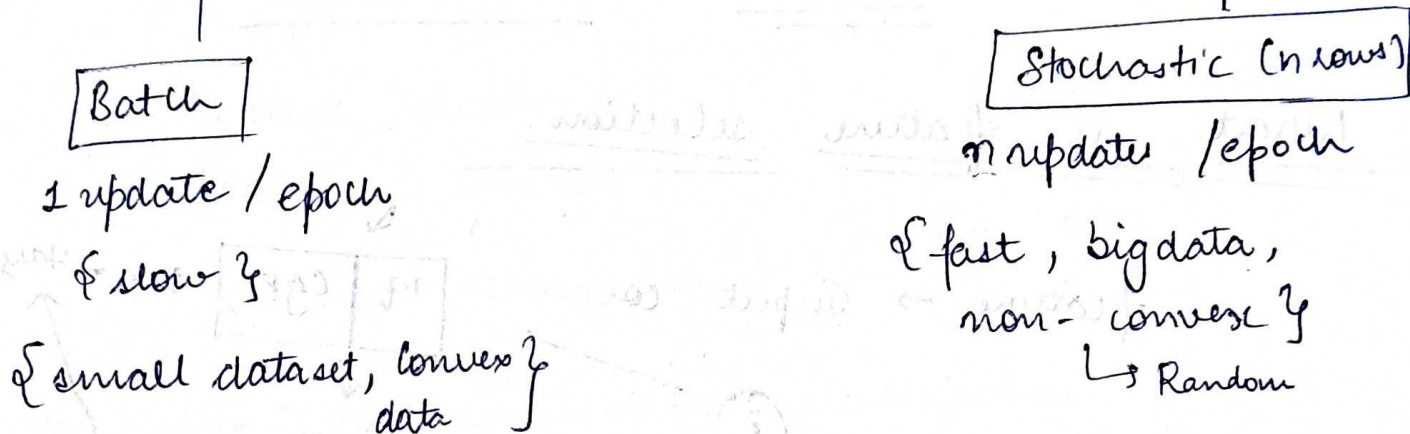 Batch
1 update / epoch.
{ slow }
{ small dataset, Convex }
data
Stochastic (n rows)
n updates / epoch
{ fast, big data,
non-convex }
↳ Random